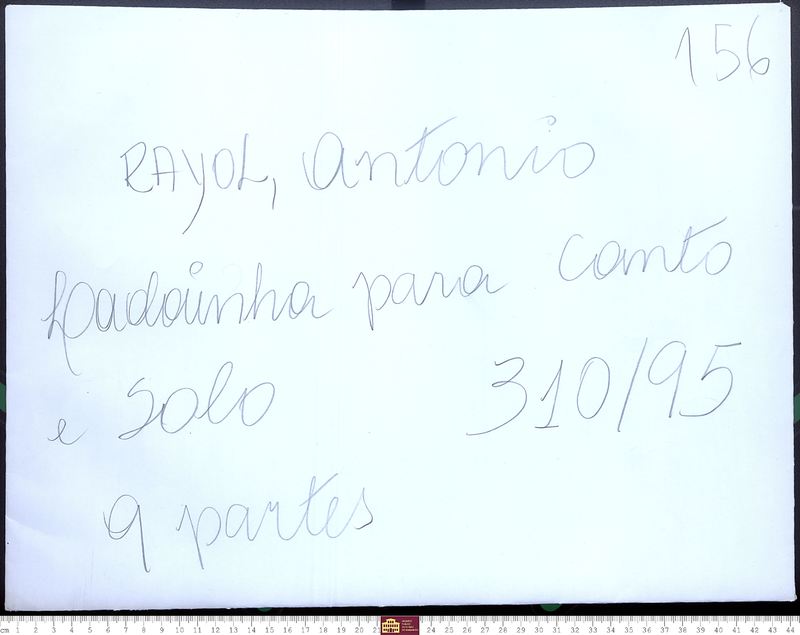 156
RAYOL, Antonio
Loadainha para Canto
e Solo 310/95
9 partes
cm 1 2 3 4 5 6 7 8 9 10 11 12 13 14 15 16 17 18 19 20 21 24 25 26 27 28 29 30 31 32 33 34 35 36 37 38 39 40 41 42 43 44